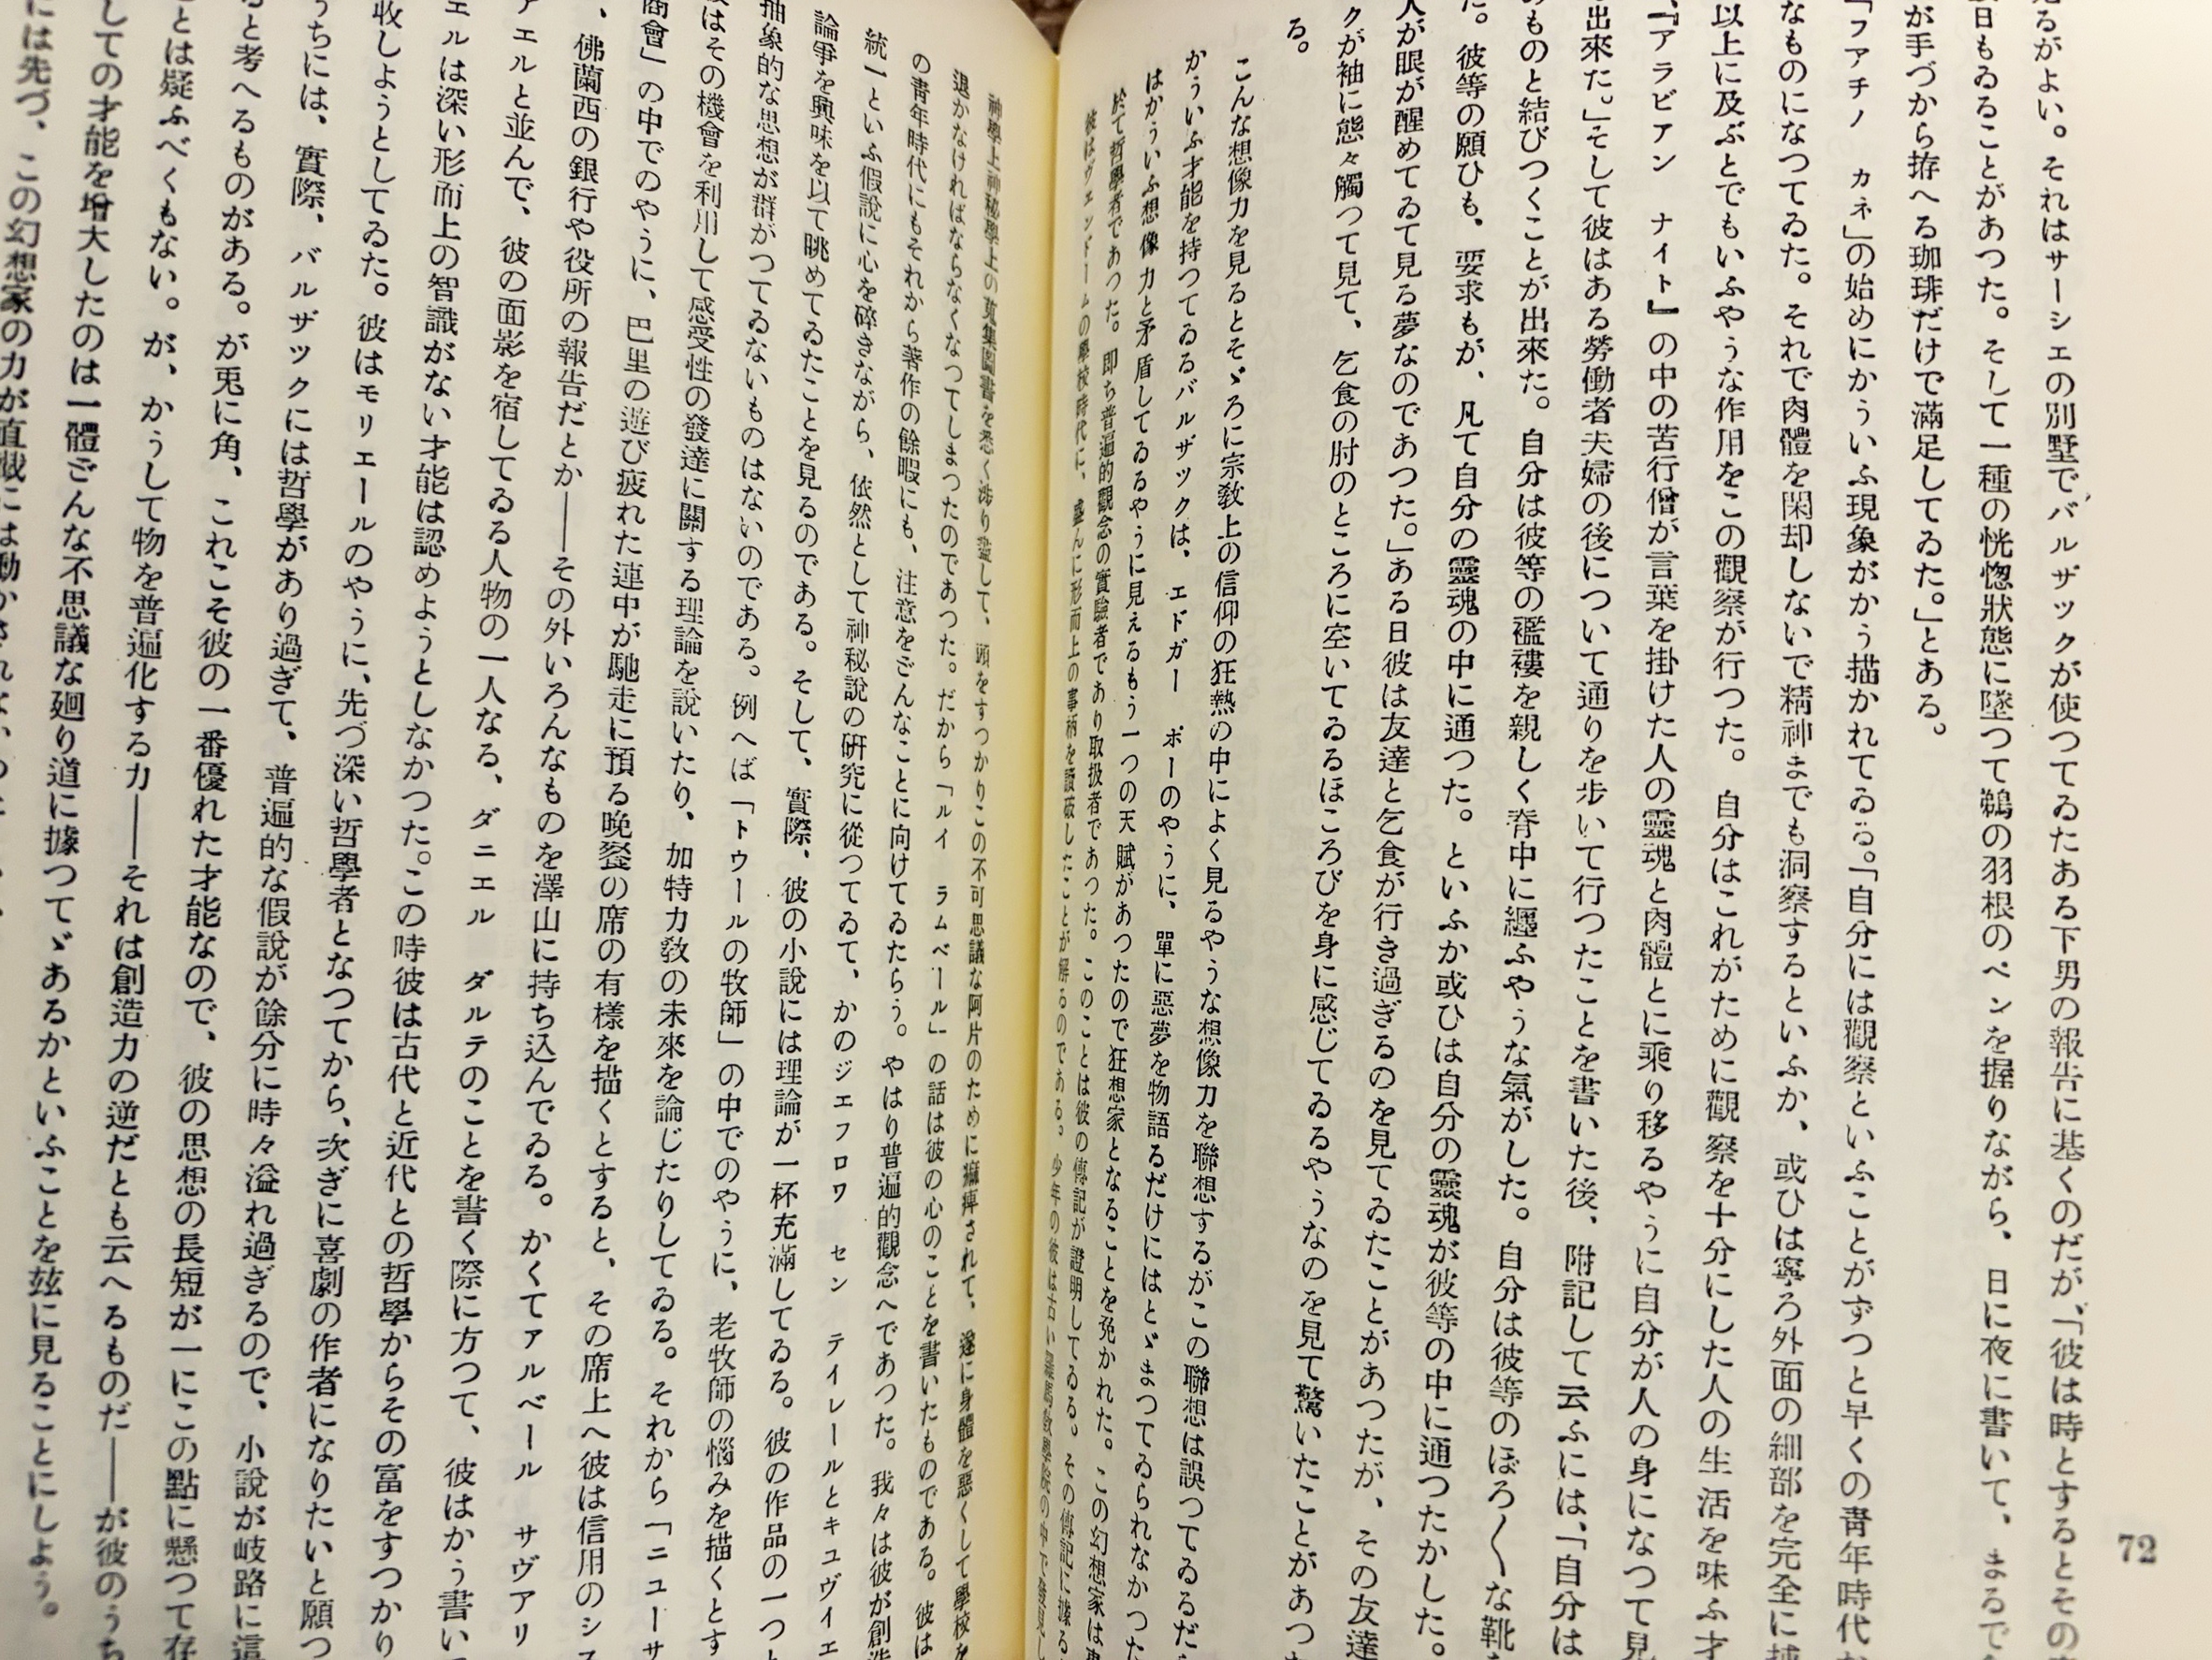 るがよい。それはサーシエの別墅でバルザックが使つてゐたある下男の報告に基くのだが、「彼は時とするとその
日もゐることがあつた。そして一種の恍惚狀態に墜つて鵝の羽根のペンを握りながら、日に夜に書いて、まるで
が手づから拵へる珈琲だけで滿足してゐた。」とある。
「フアチノ カネ」の始めにかういふ現象がかう描かれてゐる。「自分には觀察といふことがずつと早くの靑年時代
なものになつてゐた。それで肉體を閑却しないで精神までも洞察するといふか、或ひは寧ろ外面の細部を完全に捕
以上に及ぶとでもいふやうな作用をこの觀察が行つた。自分はこれがために觀察を十分にした人の生活を味ふ才
、『アラビアン ナイト』の中の苦行僧が言葉を掛けた人の靈魂と肉體とに乘り移るやうに自分が人の身になつて見
出來た。」そして彼はある勞働者夫婦の後について通りを步いて行つたことを書いた後、附記して云ふには、「自分は
ものと結びつくことが出來た。自分は彼等の襤褸を親しく脊中に纒ふやうな氣がした。自分は彼等のぼろ〱な靴
た。彼等の願ひも、要求もが、凡て自分の靈魂の中に通つた。といふか或ひは自分の靈魂が彼等の中に通つたかした。
人が眼が醒めてゐて見る夢なのであつた。」ある日彼は友達と乞食が行き過ぎるのを見てゐたことがあつたが、その友達
クが袖に態々觸つて見て、乞食の肘のところに空いてゐるほころびを身に感じてゐるやうなのを見て驚いたことがあつ
る。
こんな想像力を見るとそゞろに宗敎上の信仰の狂熱の中によく見るやうな想像力を聯想するがこの聯想は誤つてゐるだ
かういふ才能を持つてゐるバルザックは、エドガー ポーのやうに、單に惡夢を物語るだけにはとゞまつてゐられなかつた
はかういふ想像力と矛盾してゐるやうに見えるもう一つの天賦があつたので狂想家となることを免かれた。この幻想家は
於て哲學者であつた。卽ち普遍的觀念の實驗者であり取扱者であつた。このことは彼の傳記が證明してゐる。その傳記に據る
彼はヴェンドームの學校時代に、盛んに形而上の事柄を讀破したことが解るのである。少年の彼は古い
神學上神秘學上の蒐集圖書を悉く涉り盡して、頭をすつかりこの不可思議な阿片のために痲痺されて、遂に身體を惡くして學校を
退かなければならなくなつてしまつたのであつた。だから「ルイ ラムベール」の話は彼の心のことを書いたものである。彼は
の靑年時代にもそれから著作の餘暇にも、注意をどんなことに向けてゐたらう。やはり普遍的觀念へであつた。我々は彼が創造
統一といふ假說に心を碎きながら、依然として神秘說の硏究に從つてゐて、かのジエフロワ セン テイレールとキュヴイエ
論爭を興味を以て眺めてゐたことを見るのである。そして、實際、彼の小說には理論が一杯充滿してゐる。彼の作品の一つ
抽象的な思想が群がつてゐないものはないのである。例へば「トゥールの牧師」の中でのやうに、老牧師の惱みを描くとす
はその機會を利用して感受性の發達に關する理論を說いたり、加特力敎の未來を論じたりしてゐる。それから「ニユーサ
商會」の中でのやうに、巴里の遊び疲れた連中が馳走に預る晚餐の席の有樣を描くとすると、その席上へ彼は信用のシス
、佛蘭西の銀行や役所の報吿だとか――その外いろんなものを澤山に持ち込んでゐる。かくてアルベール サヴアリ
アエルと並んで、彼の面影を宿してゐる人物の一人なる、ダニエル ダルテのことを書く際に方つて、彼はかう書い
エルは深い形而上の智識がない才能は認めようとしなかつた。この時彼は古代と近代との哲學からその富をすつかり
收しようとしてゐた。彼はモリエールのやうに、先づ深い哲學者となつてから、次ぎに喜劇の作者になりたいと願つ
うちには、實際、バルザックには哲學があり過ぎて、普遍的な假說が餘分に時々溢れ過ぎるので、小說が岐路に這
ると考へるものがある。が兎に角、これこそ彼の一番優れた才能なので、彼の思想の長短が一にこの點に懸つて存
とは疑ふべくもない。が、かうして物を普遍化する力――それは創造力の逆だとも云へるものだ――が彼のうち
しての才能を增大したのは一體どんな不思議な廻り道に據つてゞあるかといふことを玆に見ることにしよう。
には先づ、この幻想家の力が直截には動かされない
72